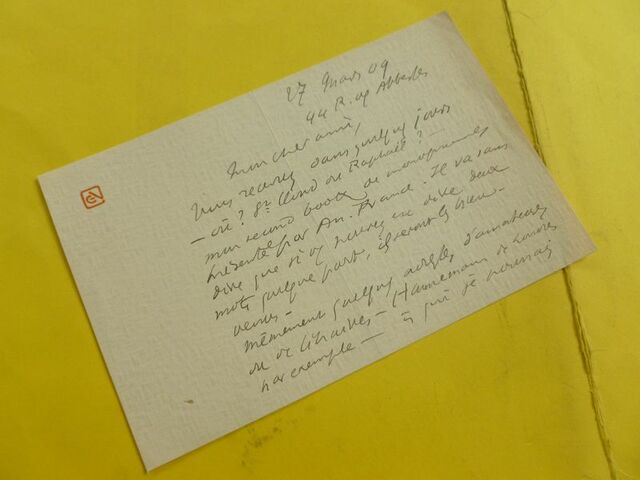 27 Mars 09
44 R. des Abbesses
Mon cher ami,
Vous recevrez dans quelques jours
— où? St Cloud ou Raphaël? —
mon second book de monogrammes
présenté par An. France. Il va sans
dire que si vous pouvez en dire deux
mots quelque part, ils seront les bien-
venus —
mêmement quelques adresses d'amateurs
ou de libraires — Hannemann de Londres
par exemple — à qui je pourrais